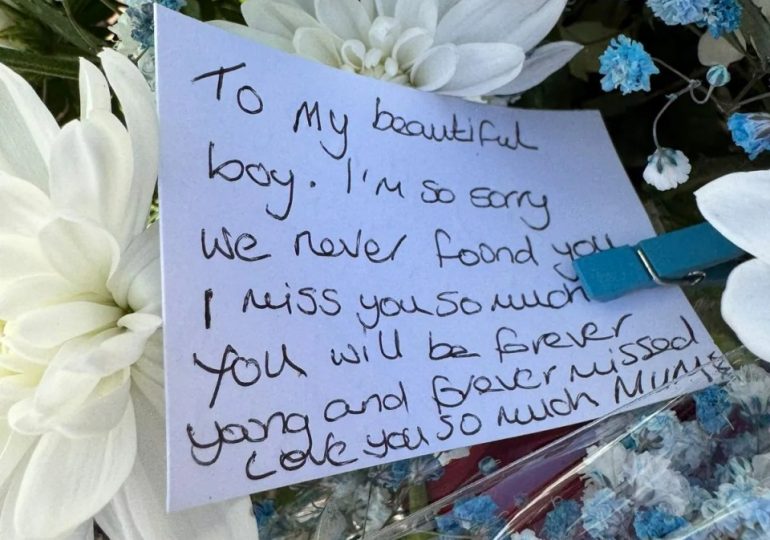 To My beautiful
boy. I'm so sorry
we never found you
I miss you so much
You will be forever
young and forever missed
Love you so much MUM